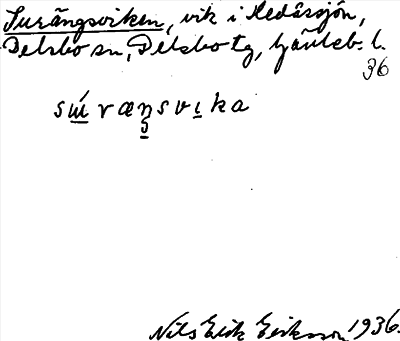 Surängsviken, vik i Hedåssjön,
Delsbo sn, Delsbo tg, Gävleb. l.
36
sɯ́ rænsvika
Nils Erik Eriksson 1936.